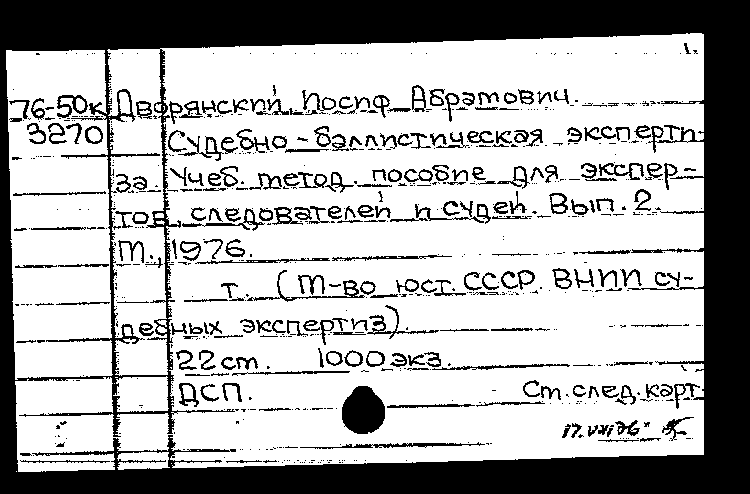 1.
76-50к Дворянский, Иосиф Абрамович.
3270 Судебно-баллистическая эксперти-
за. Учеб. метод. пособие для экспер-
тов, следователей и судей. Вып. 2.
М., 1976.
т. (М-во юст. СССР. ВНИИ су-
дебных экспертиз).
22 см. 1000 экз.
ДСП. См. след. карт.
17.VIII76г